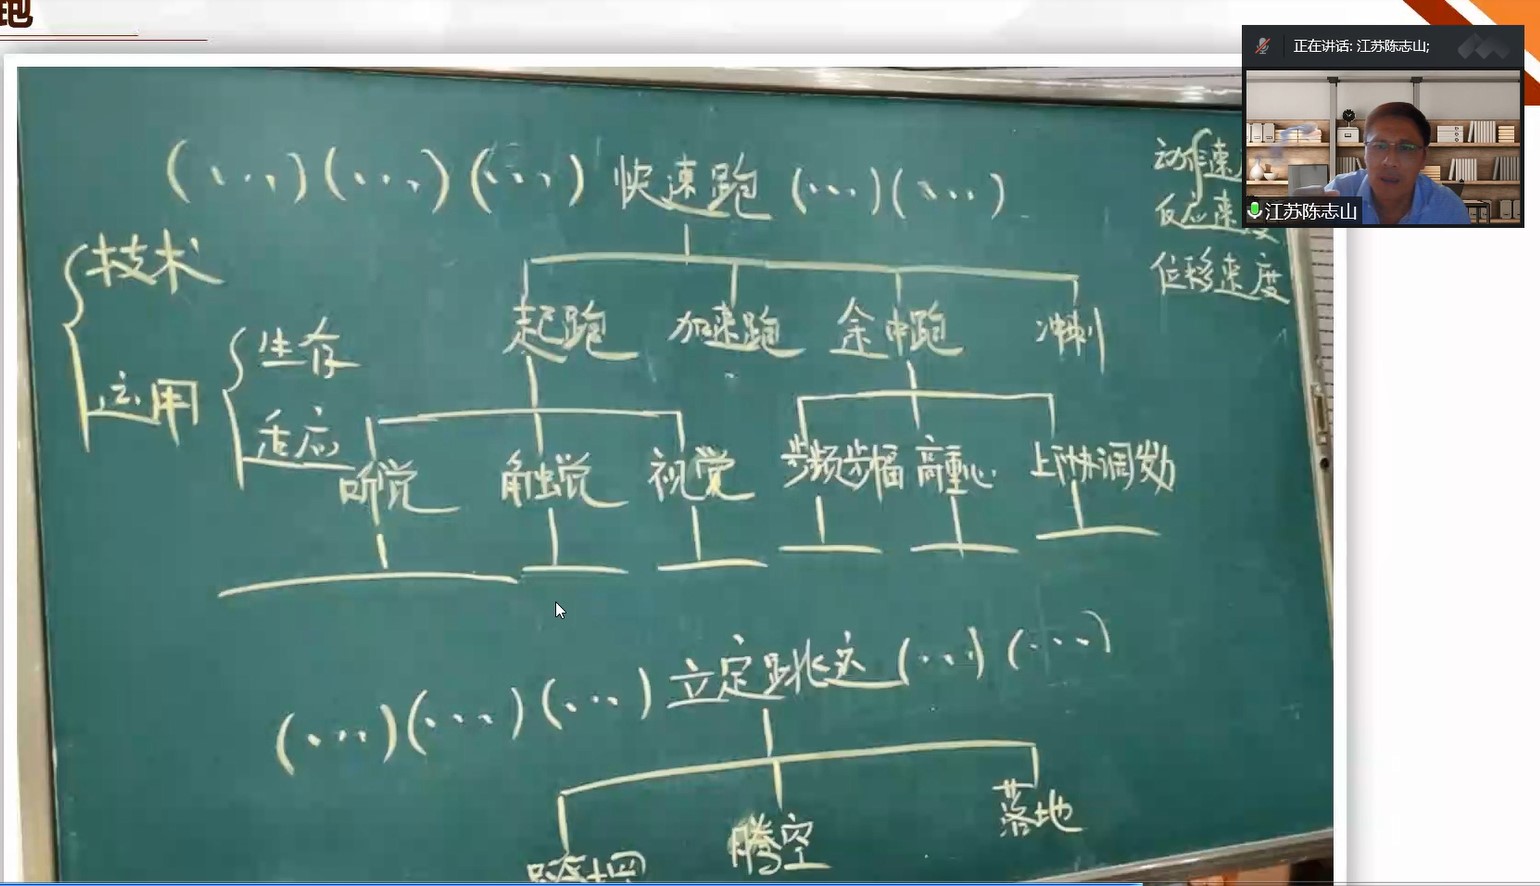 跑
正在讲话: 江苏陈志山;
江苏陈志山
(...)(...)(...)快速跑(...)(...)
动作速
反应速度
位移速度
技术
运用
生存
适应
起跑 加速跑 途中跑 冲刺
听觉 触觉 视觉 步频步幅 高重心 上下协调
(...)(...)(...)立定跳远(...)(...)
腾空 落地